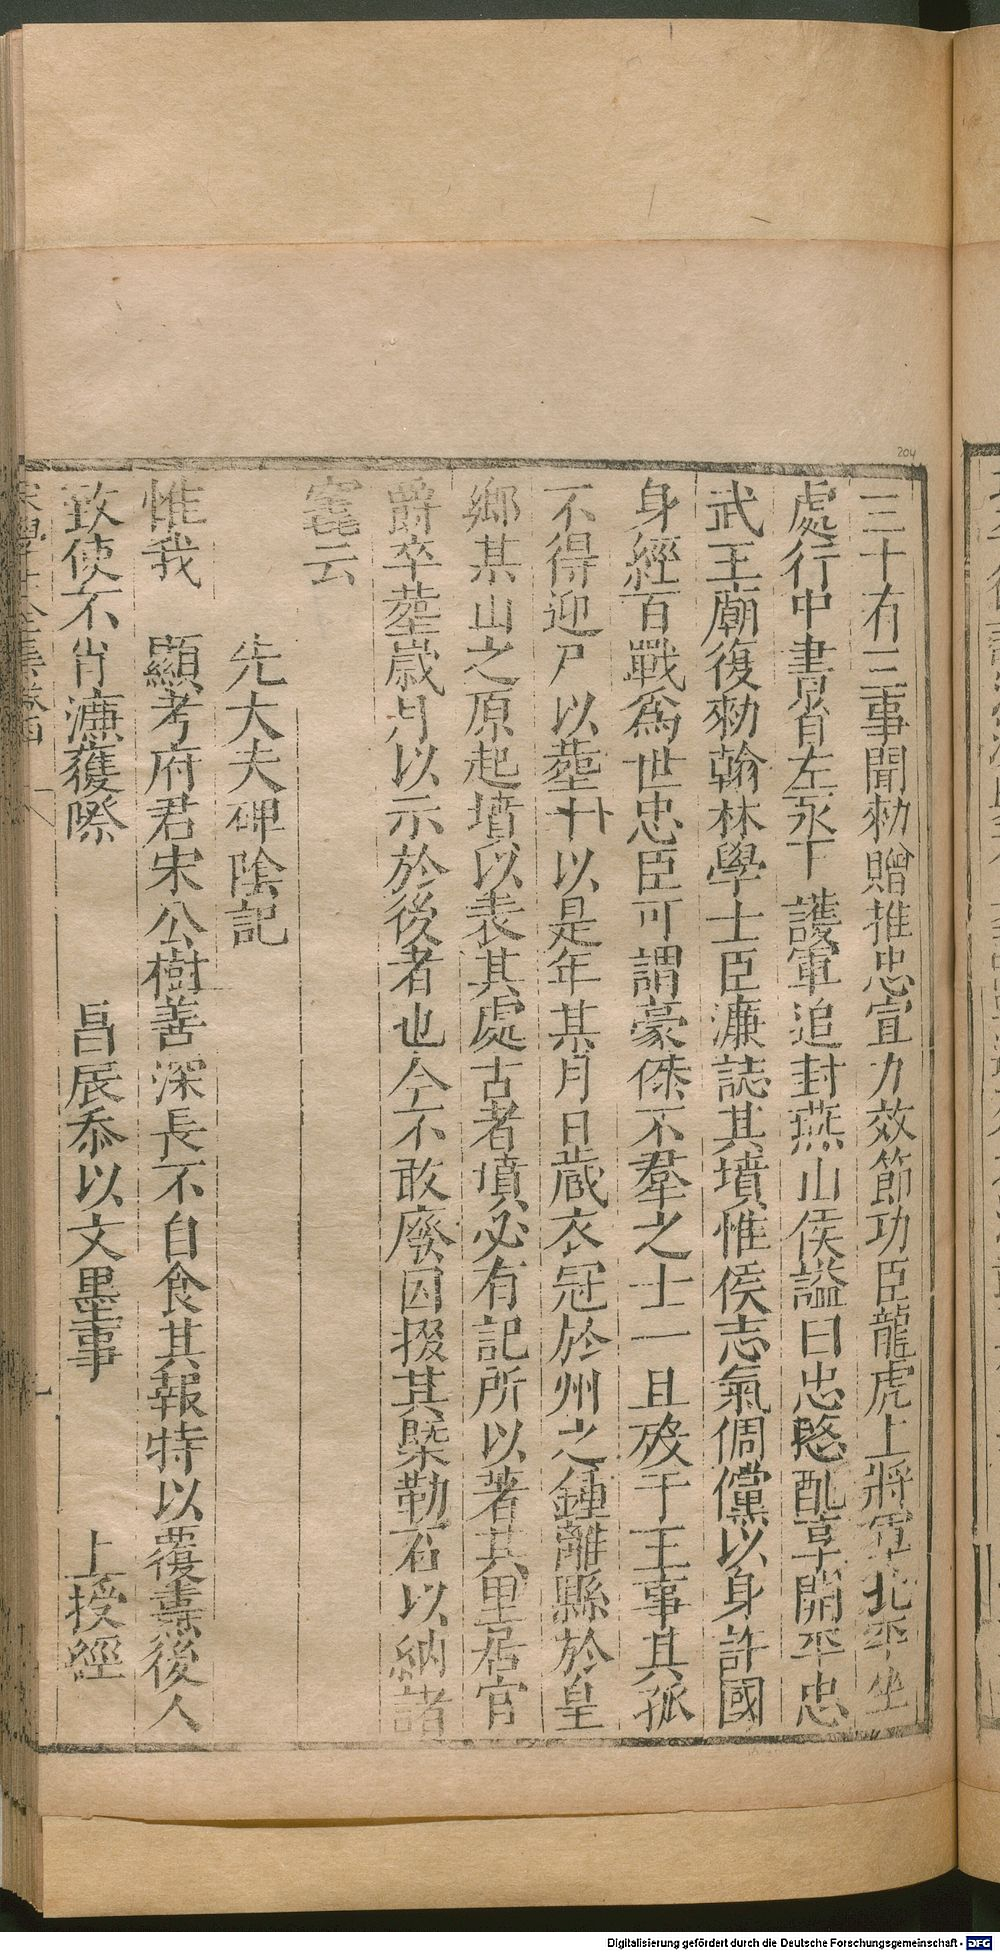 三十有三事聞勑贈推忠宣力效節功臣龍虎上將軍北平坐
處行中書省左丞下護軍追封燕山侯謚曰忠愍配享開平忠
武王廟復勑翰林學士臣濂誌其墳惟侯志氣倜儻以身許國
身經百戰爲世忠臣可謂豪傑不羣之士一旦歿于王事其孤
不得迎尸以塟廾以是年某月日蔵衣冠於州之鍾離縣於皇
鄉某山之原起墳以表其處古者墳必有記所以著其里居官
爵卒塟歲月以示於後者也今不敢廢因掇其槩勒石以納諸
窆云
先大夫碑陰記
惟我 顯考府君宋公樹善深長不自食其報特以覆燾後人
致使不肖濂獲際 昌辰忝以文墨事 上授經
204
Digitalisierung gefördert durch die Deutsche Forschungsgemeinschaft - DFG